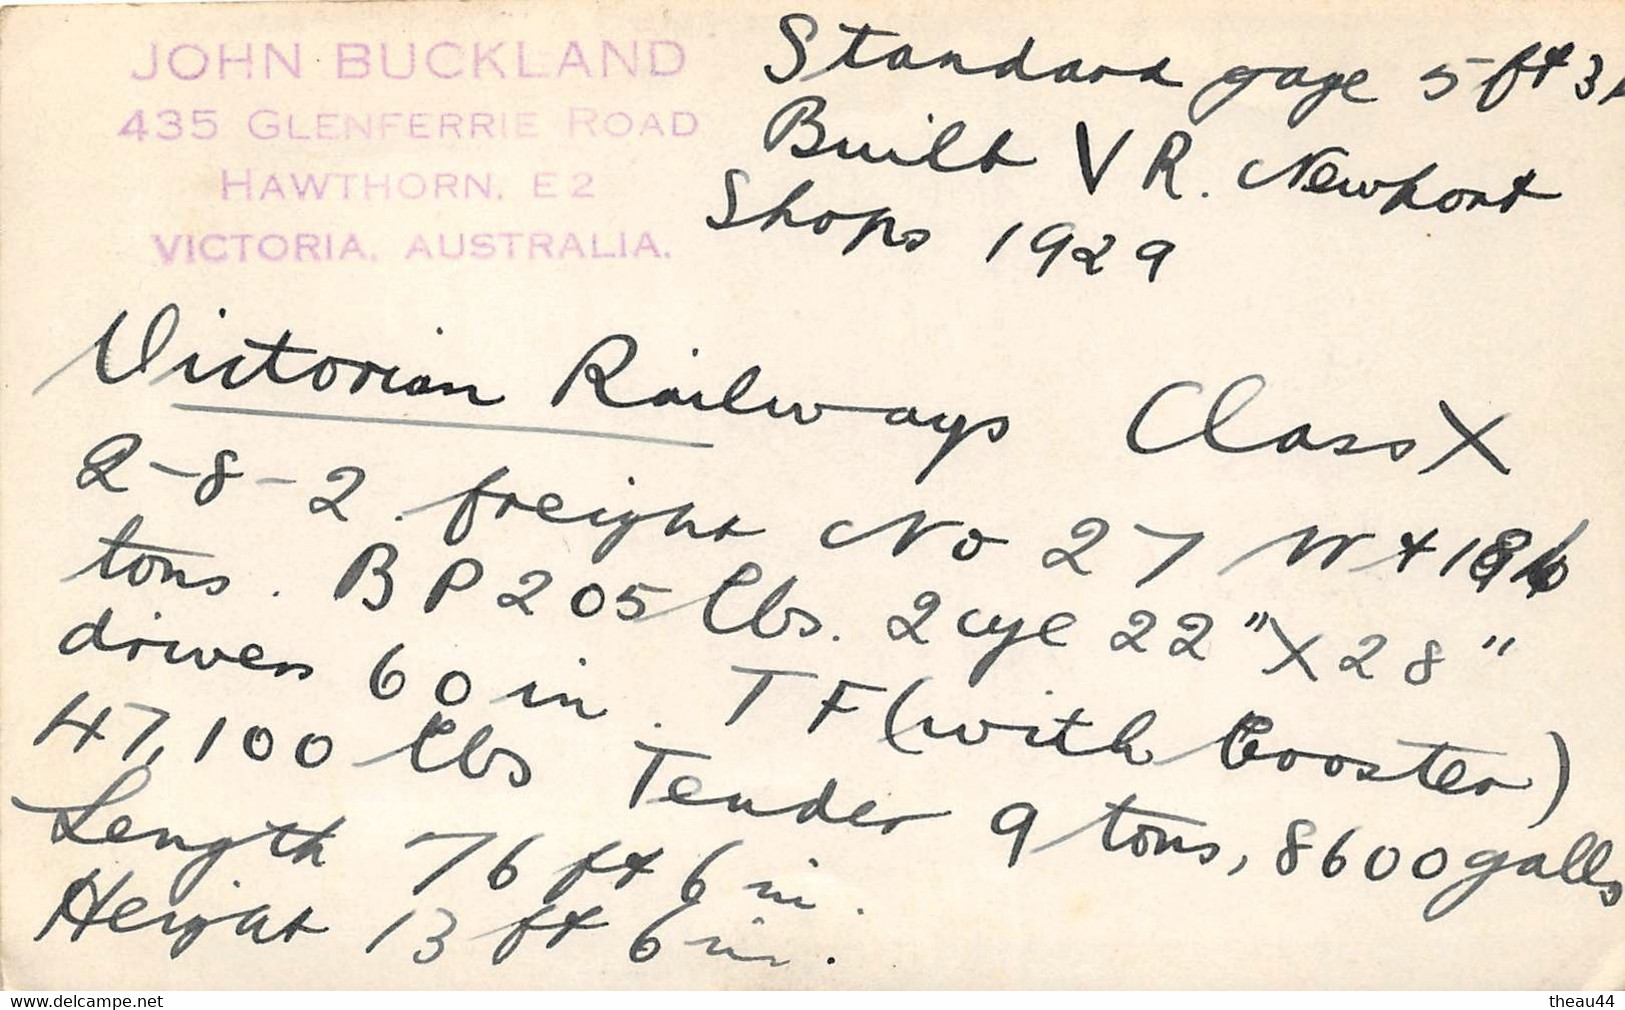 JOHN BUCKLAND
435 GLENFERRIE ROAD
HAWTHORN. E2
VICTORIA. AUSTRALIA.
Standard gage 5 ft 3
Built V R. Newport
Shops 1929
Victorian Railways Class X
2-8-2 freight No 27 Wt
tons. BP 205 lbs. 2 cyl 22" X 28"
drivers 60 in. TF (with booster)
47,100 lbs Tender 9 tons, 8600 galls
Length 76 ft 6 in.
Height 13 ft 6 in.
www.delcampe.net
theau44